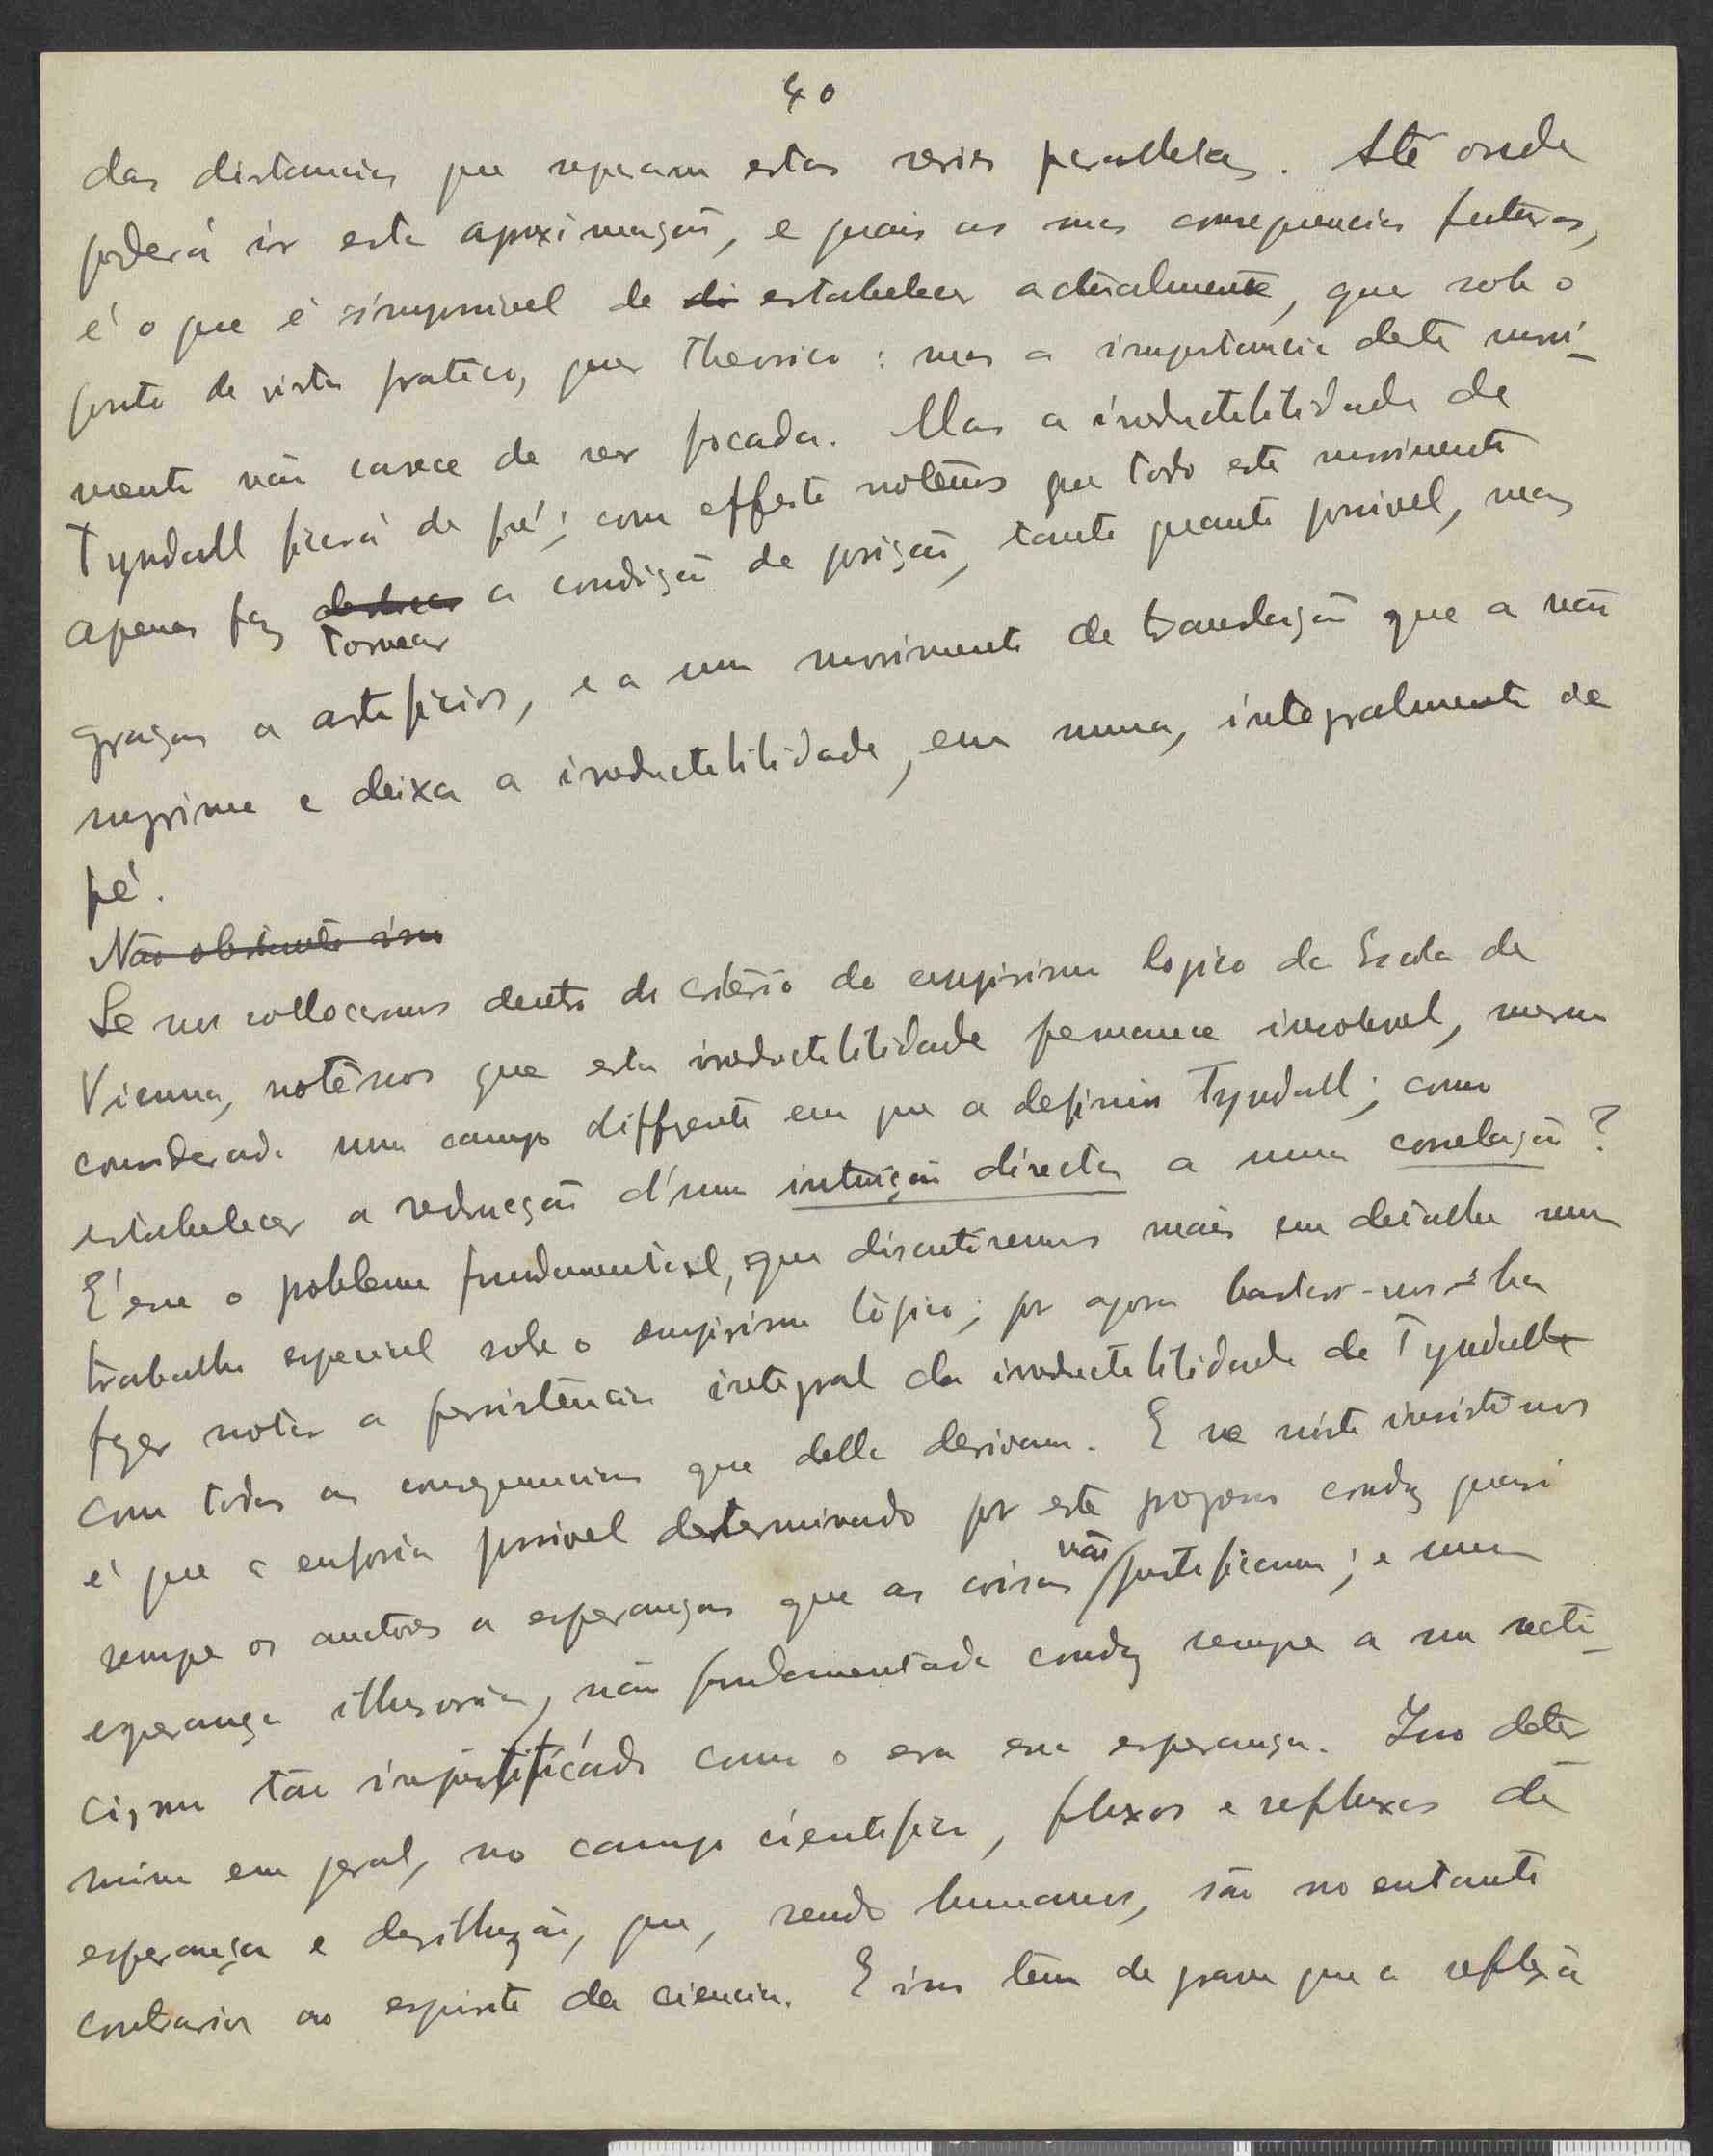 40
das distancias que separam estas series parallelas. Até onde
poderá ir esta aproximação, e quais as suas consequencias futuras,
é o que é impossivel de di estabelecer actualmente, quer sob o
ponto de vista pratico, quer theorico: mas a importancia deste movi-
mento não carece de ser focada. Mas a irreductibilidade de
Tyndall ficará de pé; com effeito notêmos que todo este movimento
apenas faz deslocar a condição de posição, tanto quanto possivel, mas
tornear
graças a artificios, e a um movimento de translação que a não
supprime e deixa a irreductibilidade, em suma, integralmente de
pé.
Não obstante isso
Se nos collocarmos dentro do critério do empirismo logico da Escola de
Vienna, notêmos que esta irreductibilidade permanece insoluvel, mesmo
considerada num campo differente em que a definiu Tyndall; como
estabelecer a reducção d'uma intuição directa a uma correlação?
E' esse o problema fundamental, que discutiremos mais em detalhe num
trabalho especial sobre o empirismo lógico; por agora bastar-nos-ha
fazer notar a persistência integral da irreductibilidade de Tyndall
com todas as consequencias que della derivam. E se nisto insistimos
é que a euforia possivel determinado por este progresso conduz quasi
sempre os auctores a esperanças que as coisas não justificam; e uma
esperança illusoria, não fundamentada conduz sempre a um scepti-
cismo tão injustificado como o era essa esperança. Isso deter
mina em geral, no campo cientifico, fluxos e refluxos de
esperança e desillusão, que, sendo humanos, são no entanto
contrarios ao espirito da ciencia. E isso tem de grave que a reflexão